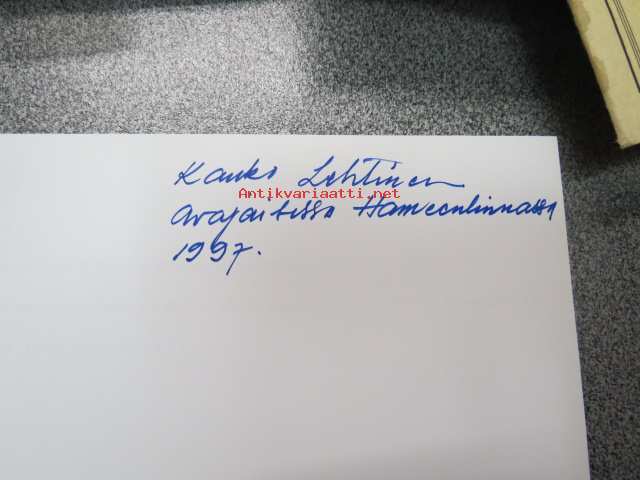 Kauko Lehtinen
Antikvariaatti.net
avajaisissa Hämeenlinnassa
1997.